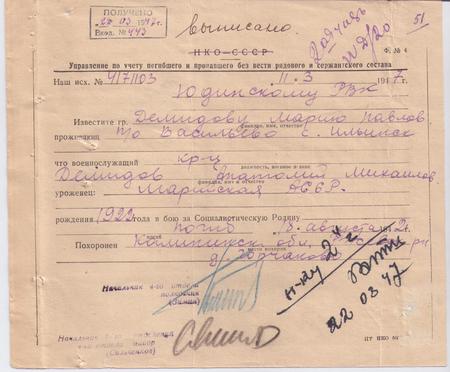 ПОЛУЧЕНО
20 03 1947г.
Вход. № 443
выписано
51
НКО-СССР
Ф. № 4
Управление по учету погибшего и пропавшего без вести рядового и сержантского состава
Наш исх. № 4/71103 11.3 1947 г.
Юдинскому РВК
Известите гр. Демидову Марию Павлов.
фамилия, имя, отчество
проживающ п/о Васильево с. Ильинск
что военнослужащий кр-ц
должность, воинское звание
Демидов Анатолий Михайлов.
фамилия, имя, отчество
уроженец: Марийская АССР.
рождения 1922 года в бою за Социалистическую Родину
погиб 18 августа 42
Похоронен Калининск. обл.
д. Горчаково
Начальник 4-го отдела
полковник
Начальник отделения
майор
(Сальников)
22 03 47